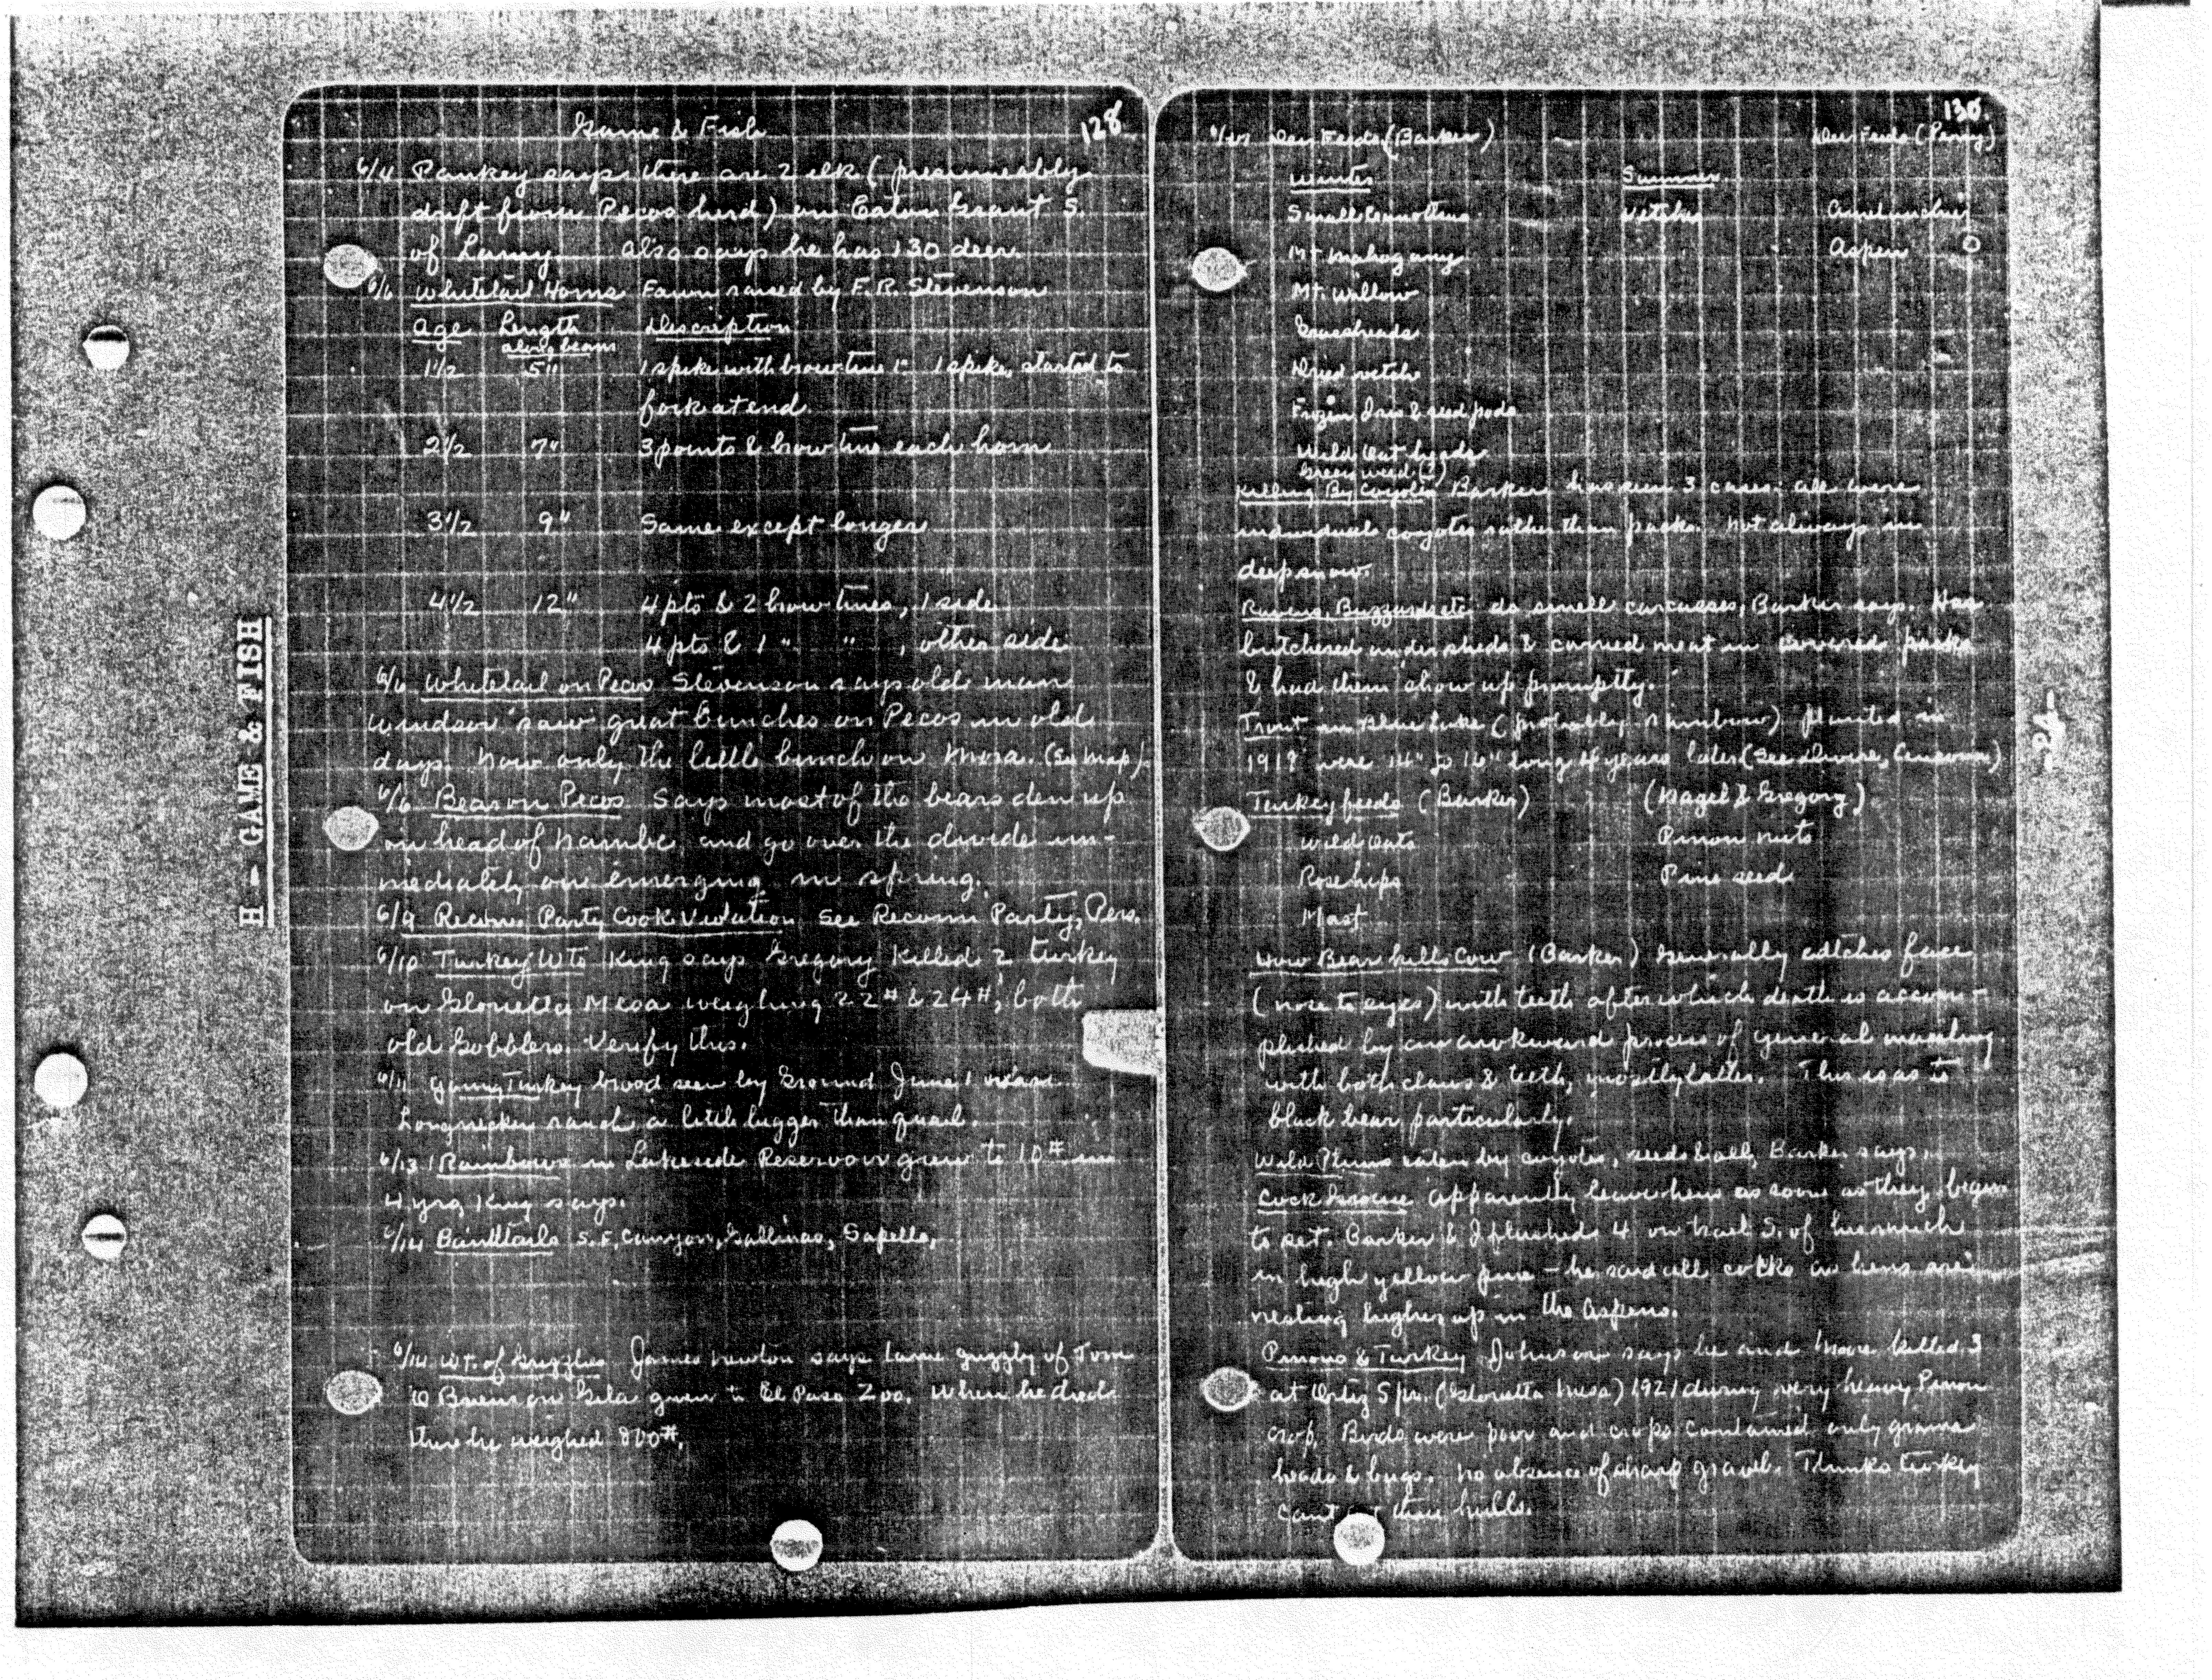 H - GAME & FISH
Game & Fish 128
6/4 Pankey says there are 2 elk (presumeably
drift from Pecos herd) on Eaton Grant S.
of Lamy. Also says he has 130 deer.
6/6 Whitetail Horns Fawn raised by F. R. Stevenson
Age Length Description
along beam
1 1/2 5" 1 spike with brow tine 1" 1 spike, started to
fork at end.
2 1/2 7" 3 points & brow tine each horn
3 1/2 9" Same except longer
4 1/2 12" 4 pts & 2 brow tines, 1 side
4 pts & 1 " " , other side
6/6 Whitetail on Pecos Stevenson says old man
Windsor saw great bunches on Pecos in old
days. Now only the little bunch on Mora. (See map).
6/6 Bear on Pecos Says most of the bears den up
on head of Nambe, and go over the divide im-
mediately on emerging in spring.
6/9 Recon. Party Cook Violation See Reconn Party, Pers.
6/10 Turkey Wts King says Gregory killed 2 turkey
on Glorietta Mesa weighing 22# & 24#, both
old gobblers. Verify this.
6/11 Young Turkey brood seen by Ground June 1 near
Longnecker ranch a little bigger than quail.
6/13 Rainbows in Lakeside Reservoir grew to 10# in
4 yrs, King says.
6/14 Bandtails S. F. Canyon, Gallinas, Sapello,
6/14 Wt. of Grizzlies James Newton says tame grizzly of Tom
O Brien on Gila given to El Paso Zoo. When he died
there he weighed 800#.
130.
Deer Feeds (Barker) Deer Feeds (Perry)
Winter Summer
Small Ceanothus Vetches
Mt Mahogany Aspen
Mt. Willow
Grassheads
Dried vetch
Frozen Iris & seed pods
Wild Oat heads
Green weed (?)
Killing By Coyotes Barker has seen 3 cases: all were
individual coyotes rather than packs. Not always in
deep snow.
Ravens, Buzzards etc do smell carcasses, Barker says. Has
butchered under sheds & carried meat in covered packs
& had them show up promptly.
Trout in Blue Lake (probably rainbow) planted in
were 14" to 16" long 4 years later (See Divine, Cimarron)
Turkey feeds (Barker) (Nagel & Gregory)
Wild Oats Pinon nuts
Rose hips Pine seed
Mast
How Bear kills Cow (Barker) Generally catches face
(nose to eyes) with teeth after which death is accom-
plished by an awkward process of general mauling
with both claws & teeth, mostly latter. This is as to
black bear particularly.
Wild Plums eaten by coyotes, seeds & all, Barker says.
Cock Grouse apparently leave hens as soon as they begin
to set. Barker & I flushed 4 on trail S. of his ranch
in high yellow pine - he said all cocks as hens are
nesting higher up in the Aspens.
Pinons & Turkey Johnson says he and killed 3
at Ortiz Spr. (Glorietta Mesa) 1921 during very heavy Pinon
crop. Birds were poor and crops contained only grama
heads & bugs. No absence of sharp gravel. Thinks turkey
cant hulls.
-24-